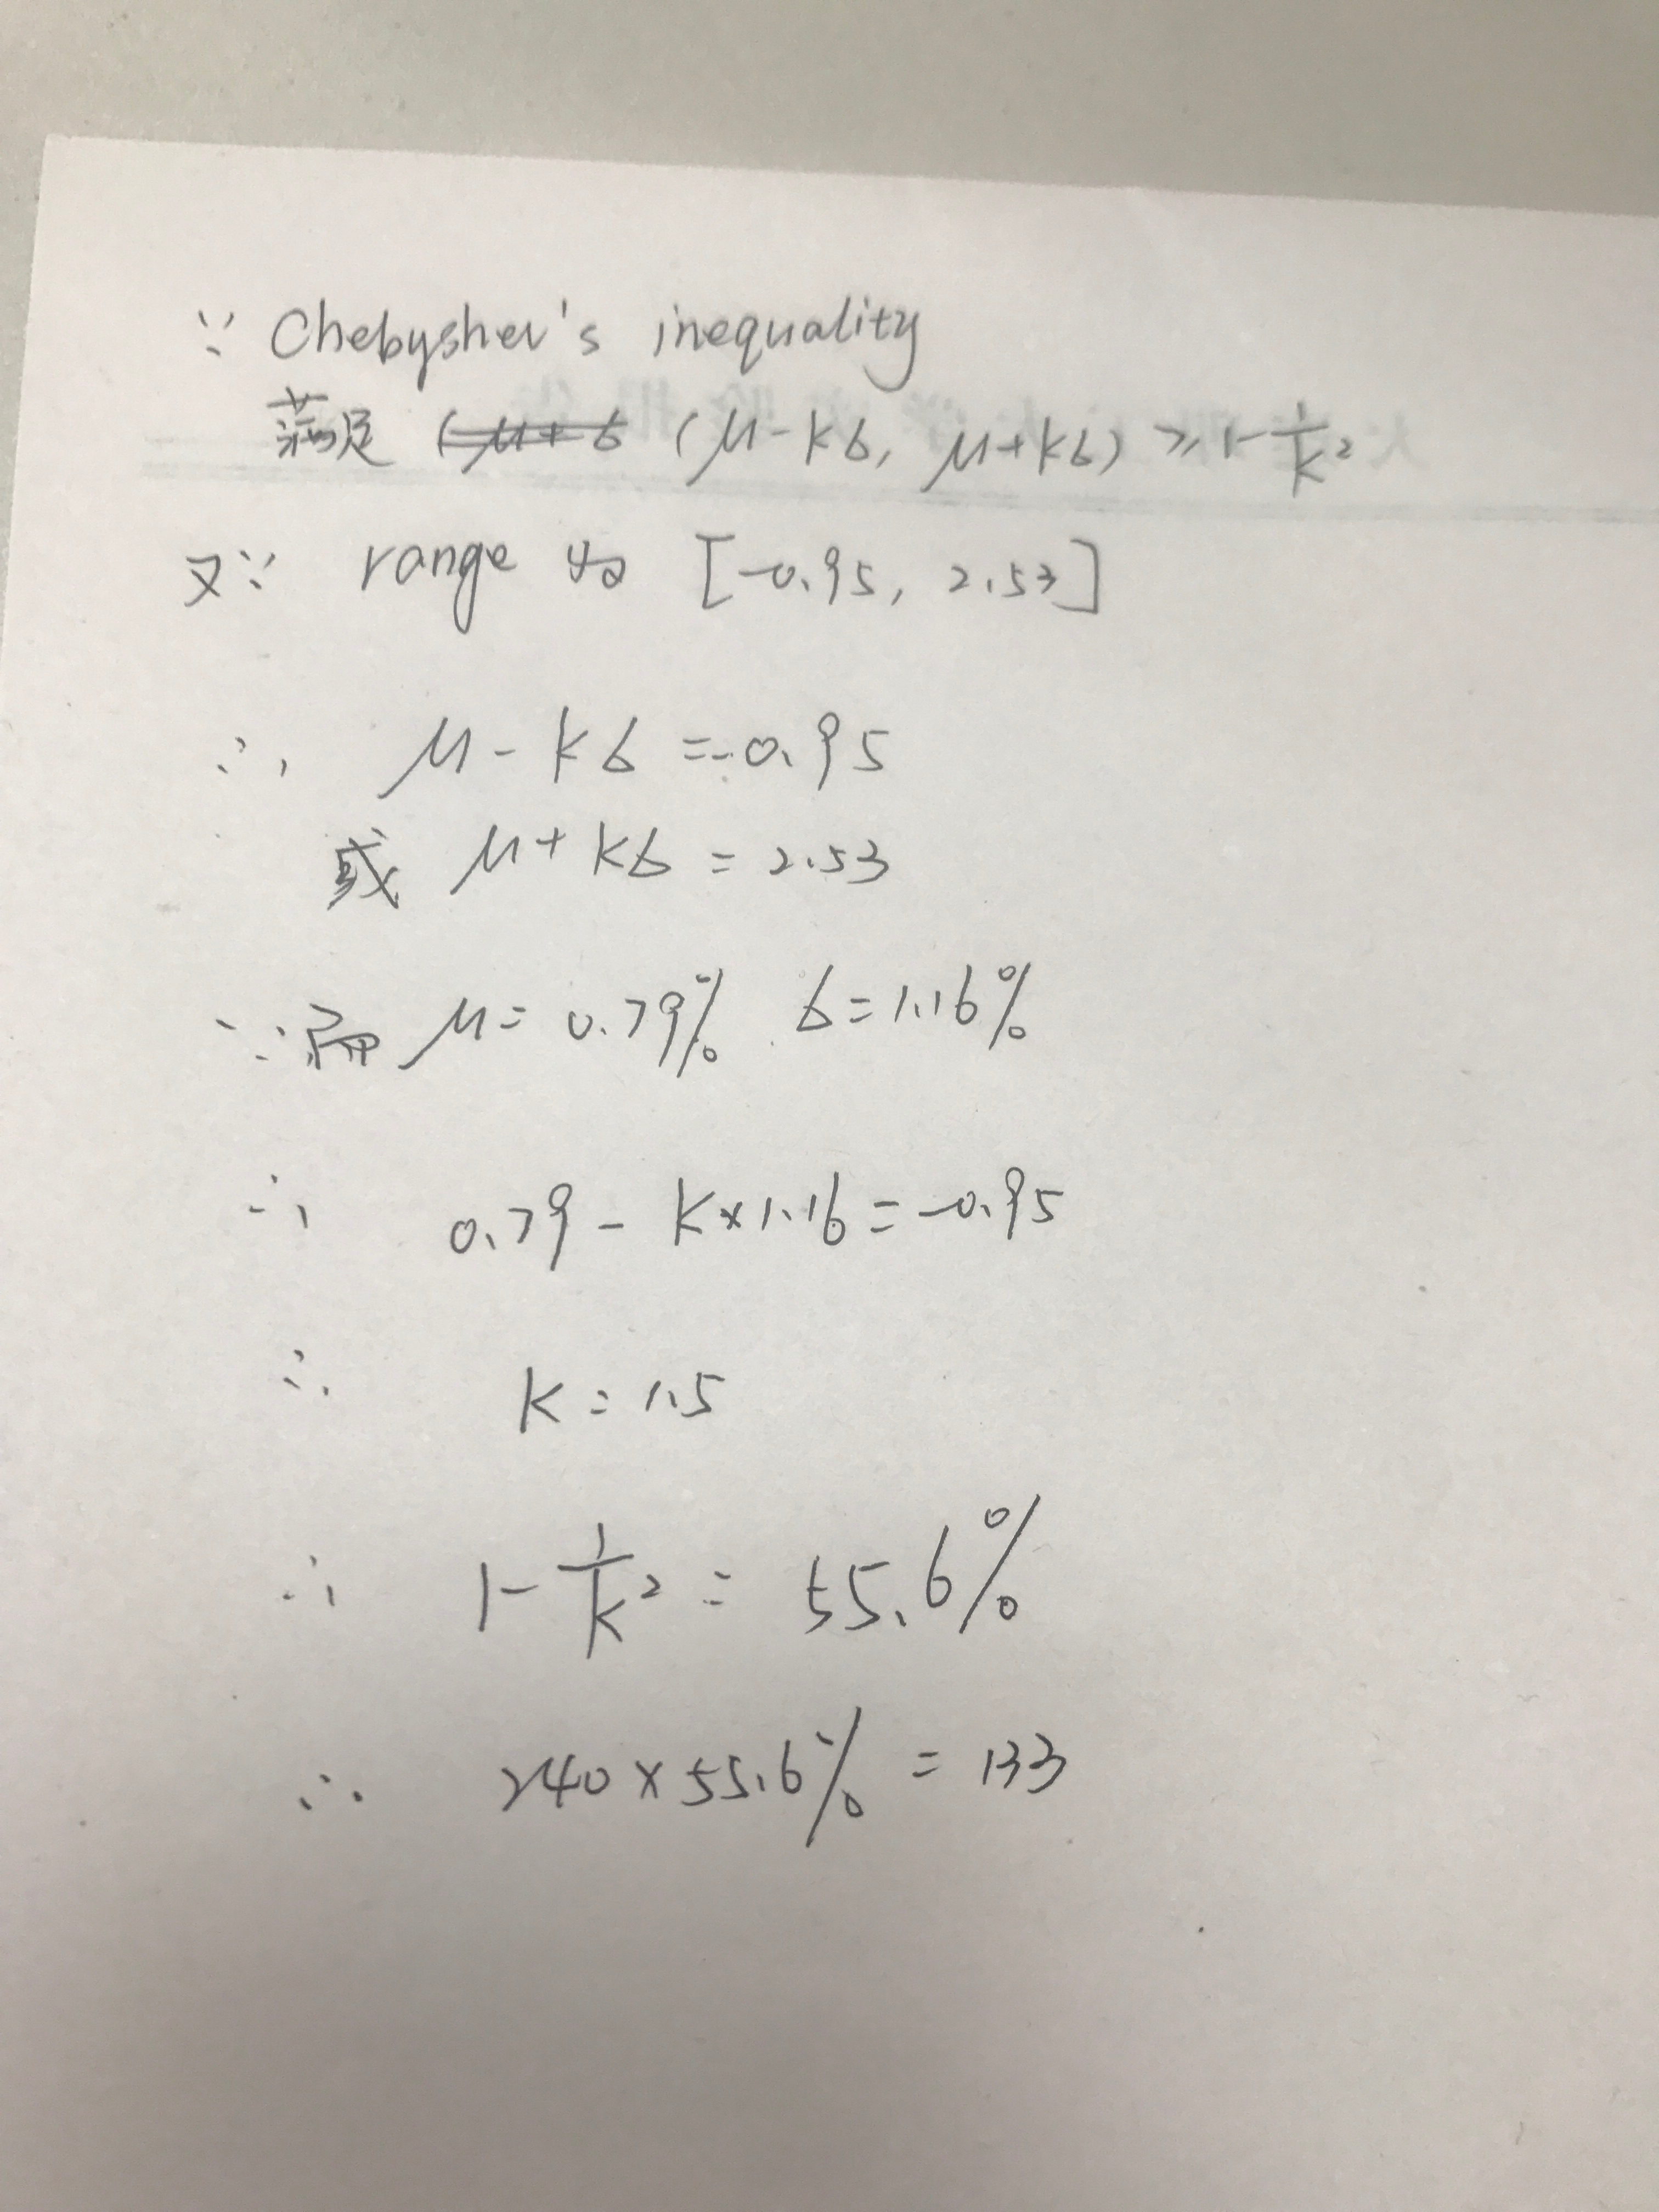 ∵ Chebyshev's inequality
满足 (μ-kб, μ+kб) ≥ 1-1/k²
又∵ range 为 [-0.95, 2.53]
∴ μ-kб=-0.95
或 μ+kб=2.53
∵ μ=0.79% б=1.16%
∴ 0.79-k×1.16=-0.95
∴ k=1.5
∴ 1-1/k²=55.6%
∴ 240×55.6%=133